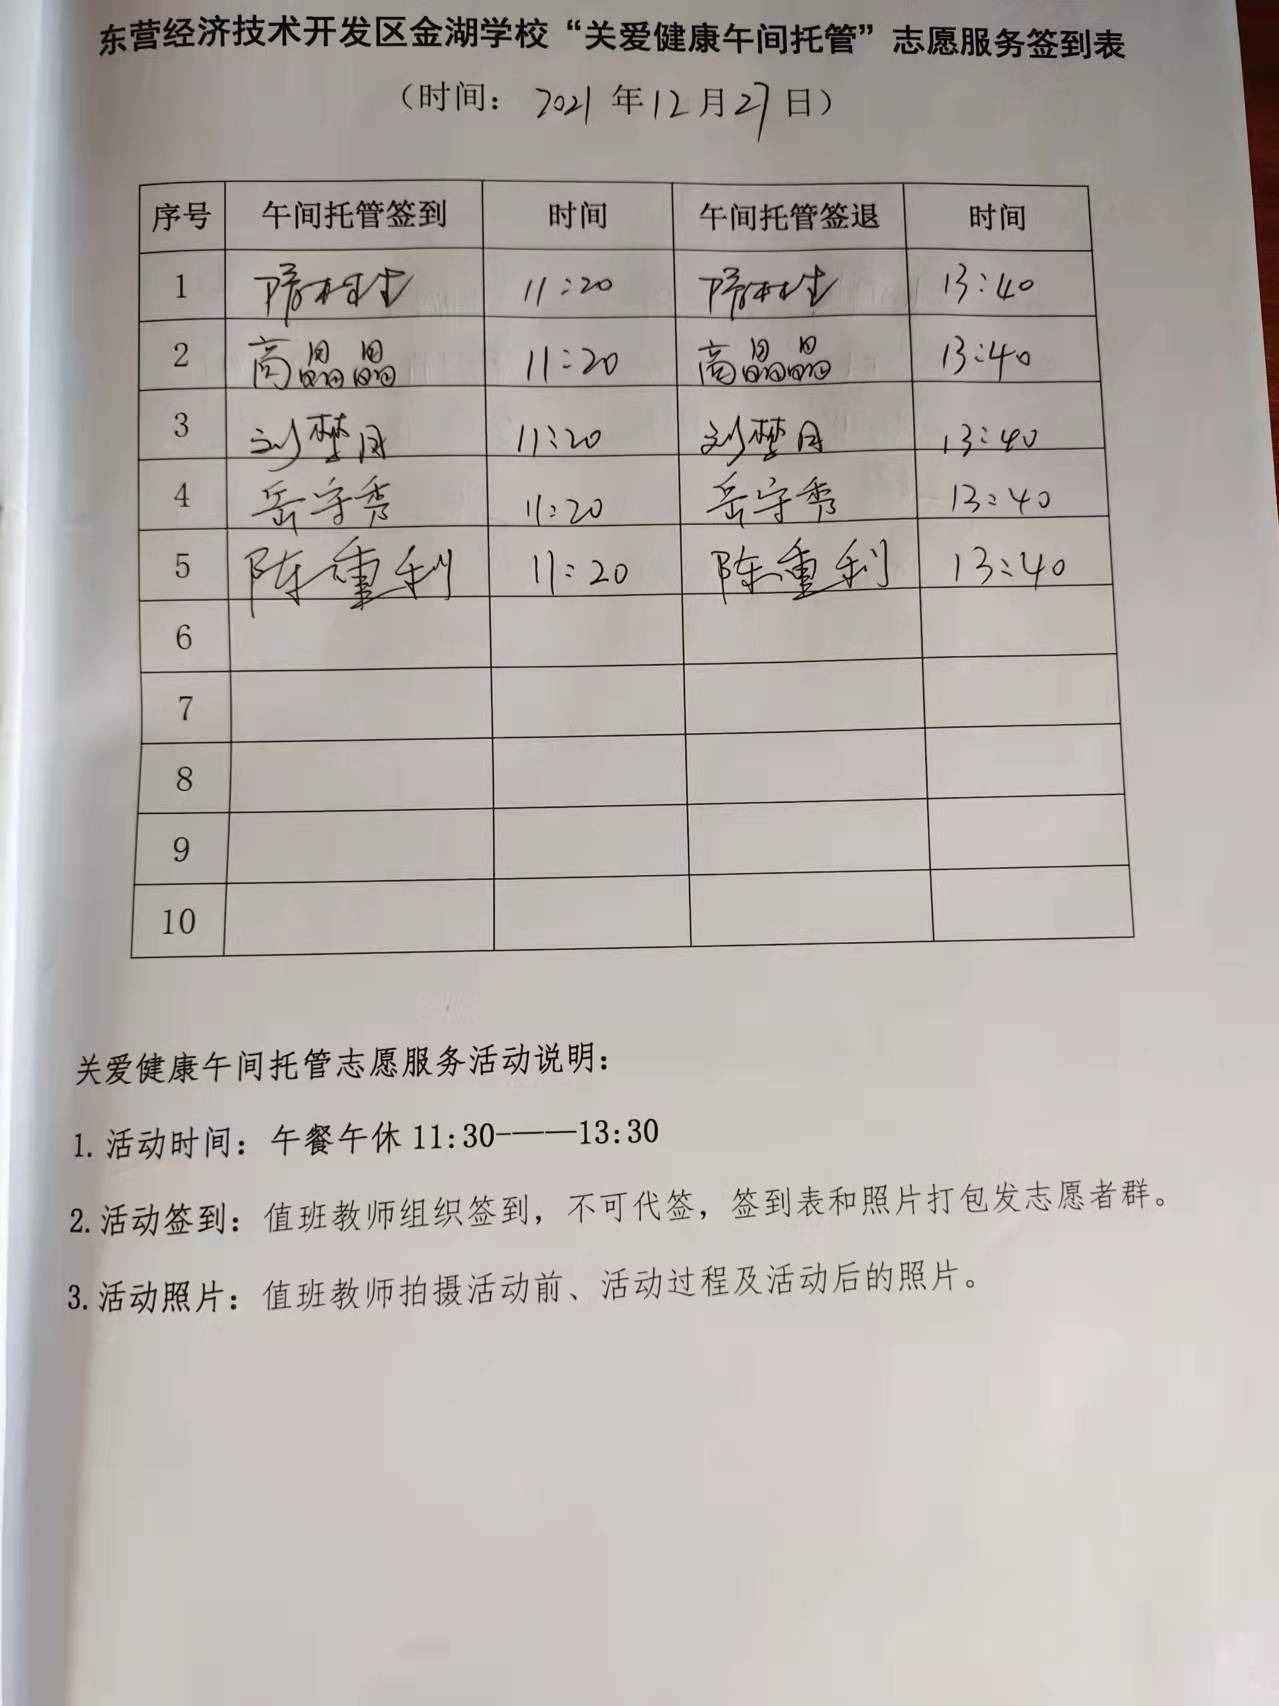 东营经济技术开发区金湖学校“关爱健康午间托管”志愿服务签到表
（时间：2021年12月27日）
序号 午间托管签到 时间 午间托管签退 时间
1 11:20 13:40
2 高晶晶 11:20 高晶晶 13:40
3 刘梦月 11:20 刘梦月 13:40
4 岳守秀 11:20 岳守秀 13:40
5 陈重利 11:20 陈重利 13:40
6
7
8
9
10
关爱健康午间托管志愿服务活动说明：
1.活动时间：午餐午休11:30-——13:30
2.活动签到：值班教师组织签到，不可代签，签到表和照片打包发志愿者群。
3.活动照片：值班教师拍摄活动前、活动过程及活动后的照片。